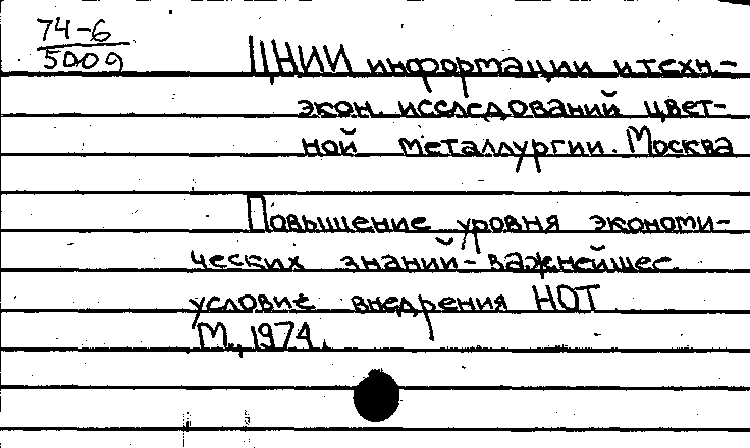 74-6
5009
ЦНИИ информации и техн.-
экон. исследований цвет-
ной металлургии. Москва
Повышение уровня экономи-
ческих знаний - важнейшее
условие внедрения НОТ
М., 1974.